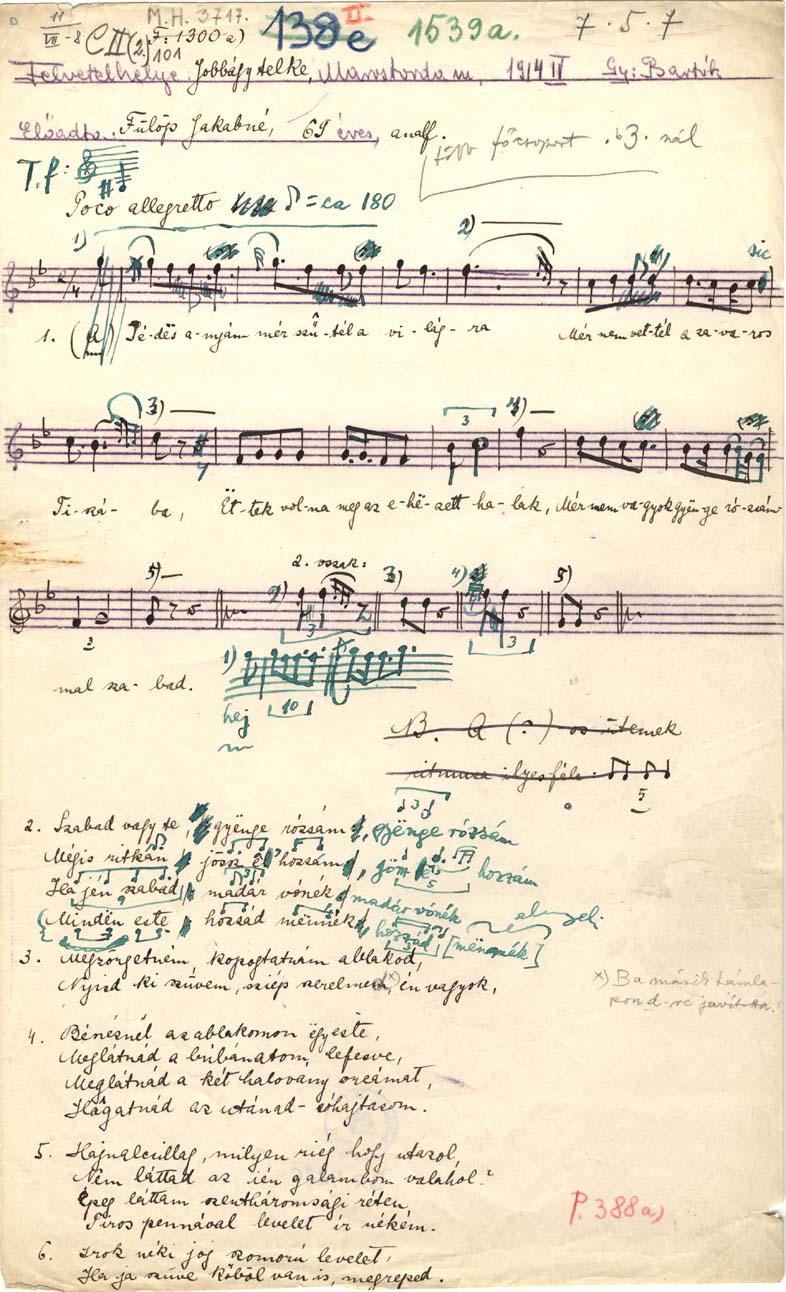 11/VII-8 C II (2) M.H. 3717. F: 1300a) 101 138e II. 1539a. 7.5.7
Felvétel helye Jobbágytelke, Marostorda m, 1914 II Gy: Bartók
Előadta: Fülöp Jakabné, 69 éves, analf.
főcsoport b3. nál
T.f:
Poco allegretto ♪ = ca 180
1) 2) sic
2/4
1. (A) Jé-dës a-nyám mér szű-tél a vi-lág-ra Mér nem vet-tél a za-va-ros
3) 3 4)
Ti-szá-ba, Ët-tek vol-na meg az e-hë-zett ha-lak, Mér nem va-gyok gyën-ge ró-zsám
5) 2. vssak: 2) 3 3) 4) 3 5)
2
mal sza-bad.
1)
hej 10
B. A (?)-os ütemek
ritmusa ilyesféle:
5
2. Szabad vagy te, gyënge rózsám, gyënge rózsám
Mégis ritkán jössz él hozzám, jöm hozzám
Ha jén szabad madár vónék madár vónék
Mindën este hozzád mënnék hozzád [mënnék]
3. Megzörgetném kopogtatnám ablakod,
Nyisd ki szüvem, sziép szerelmem, én vagyok,
x) Ba másik támla-
pon d-re javította.
4. Bénéznél az ablakomon ëgyeste,
Meglátnád a búbánatom, lefesve,
Meglátnád a két halovány orcámat,
Hâgatnád az utánad-sóhajtásom.
5. Hajnalcsillag, milyen riég hogy utazol,
Nem láttad az ién galambom valahol?
Épeg láttam szentháromsági réten,
Piros pennával levelet ír nékëm.
P. 388a)
6. Irok néki jog szomorú levelet,
Ha ja szüve kőből van is, megreped.